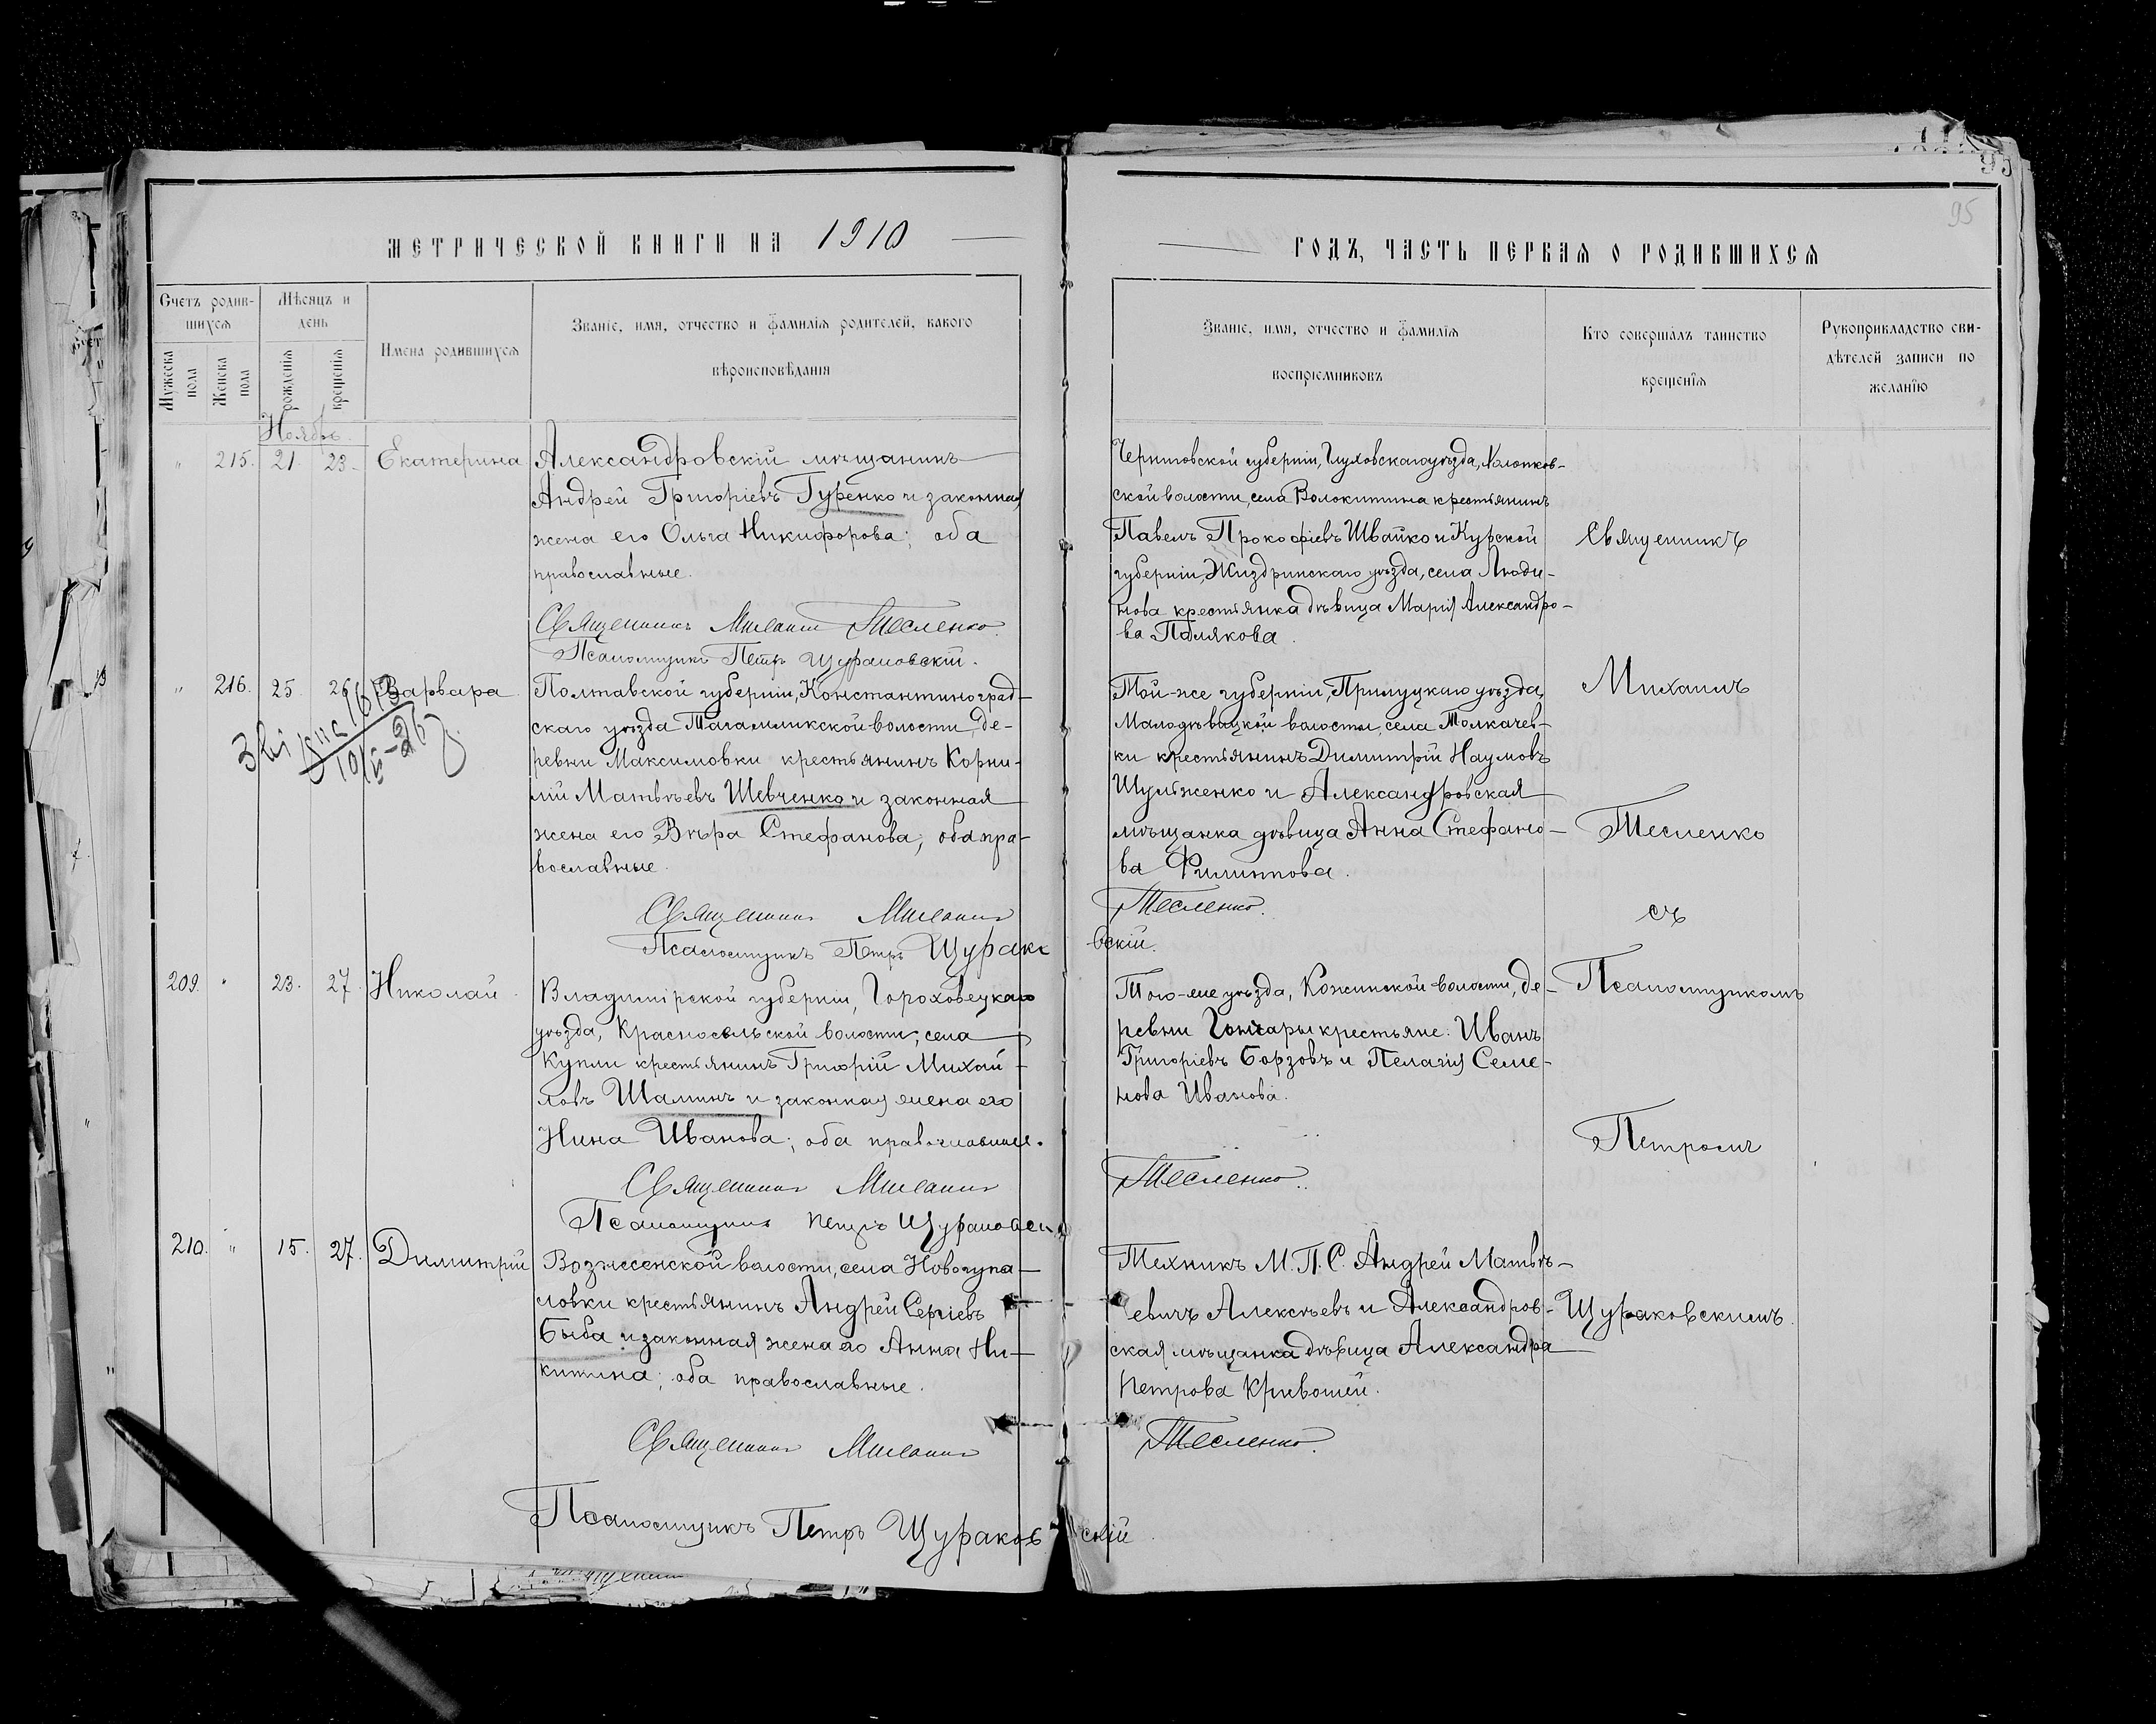 95
95
МЕТРИЧЕСКОЙ КНИГИ НА 1910
ГОДЪ, ЧАСТЬ ПЕРВАЯ О РОДИВШИХСЯ
Счетъ родив-
шихся
Мѣсяцъ и
день
Мужеска
пола
Женска
пола
рожденія
крещенія
Имена родившихся
Званіе, имя, отчество и фамилія родителей, какого
вѣроисповѣданія
Званіе, имя, отчество и фамилія
воспріемниковъ
Кто совершалъ таинство
крещенія
Рукоприкладство сви-
дѣтелей записи по
желанію
Ноябрь.
" 215. 21. 23. Екатерина
Александровскій мѣщанинъ
Андрей Григоріевъ Гуренко и законная
жена его Ольга Никифорова; оба
православные.
Священникъ Михаилъ Тесленко.
Псаломщикъ Петръ Щураковскій.
Черниговской губерніи, Глуховскаго уѣзда,
ской волости, села Волокитина крестьянинъ
Павелъ Прокофіевъ Швайко и Курской
губерніи, Жиздринскаго уѣзда, села Люди-
нова крестьянка дѣвица Марія Александро-
ва Полякова.
" 216. 25. 26. Варвара
Полтавской губерніи, Константиноград-
скаго уѣзда Тагамликской волости, де-
ревни Максимовки крестьянинъ Корни-
лій Матвѣевъ Шевченко и законная
жена его Вѣра Стефанова; оба пра-
вославные.
Священникъ Михаилъ Тесленко.
Псаломщикъ Петръ Щураковскій.
Той-же губерніи, Прилуцкаго уѣзда,
Малодѣвицкой волости, села Толкачев-
ки крестьянинъ Димитрій Наумовъ
Шульженко и Александровская
мѣщанка дѣвица Анна Стефано-
ва Филиппова.
209. " 23. 27. Николай
Владимірской губерніи, Гороховецкаго
уѣзда, Красносельской волости, села
Купли крестьянинъ Григорій Михай-
ловъ Шалинъ и законная жена его
Нина Иванова; оба православные.
Священникъ Михаилъ Тесленко.
Псаломщикъ Петръ Щураковскій
Того-же уѣзда, Кожинской волости, де-
ревни Гончары крестьяне: Иванъ
Григоріевъ Борзовъ и Пелагія Семе-
нова Иванова.
210. " 15. 27. Димитрій
Вознесенской волости, села Новогупа-
ловки крестьянинъ Андрей Сергіевъ
Быба и законная жена его Анна Ни-
китина; оба православные.
Священникъ Михаилъ Тесленко.
Псаломщикъ Петръ Щураковскій
Техникъ М.П.С. Андрей Матвѣ-
евичъ Алексѣевъ и Александров-
ская мѣщанка дѣвица Александра
Петрова Кривошей.
Священникъ
Михаилъ
Тесленко
съ
Псаломщикомъ
Петромъ
Щураковскимъ.